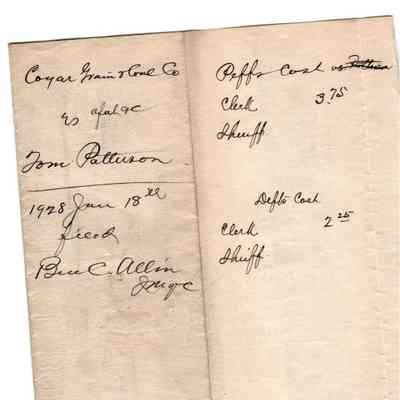 Coyar Grain & Coal Co
vs
Tom Patterson
1928 Jan 18th
filed
Ben C. Allin
Plffs Cost vs
Clerk 3.75
Sheriff
Defts Cost
Clerk 2 25
Sheriff